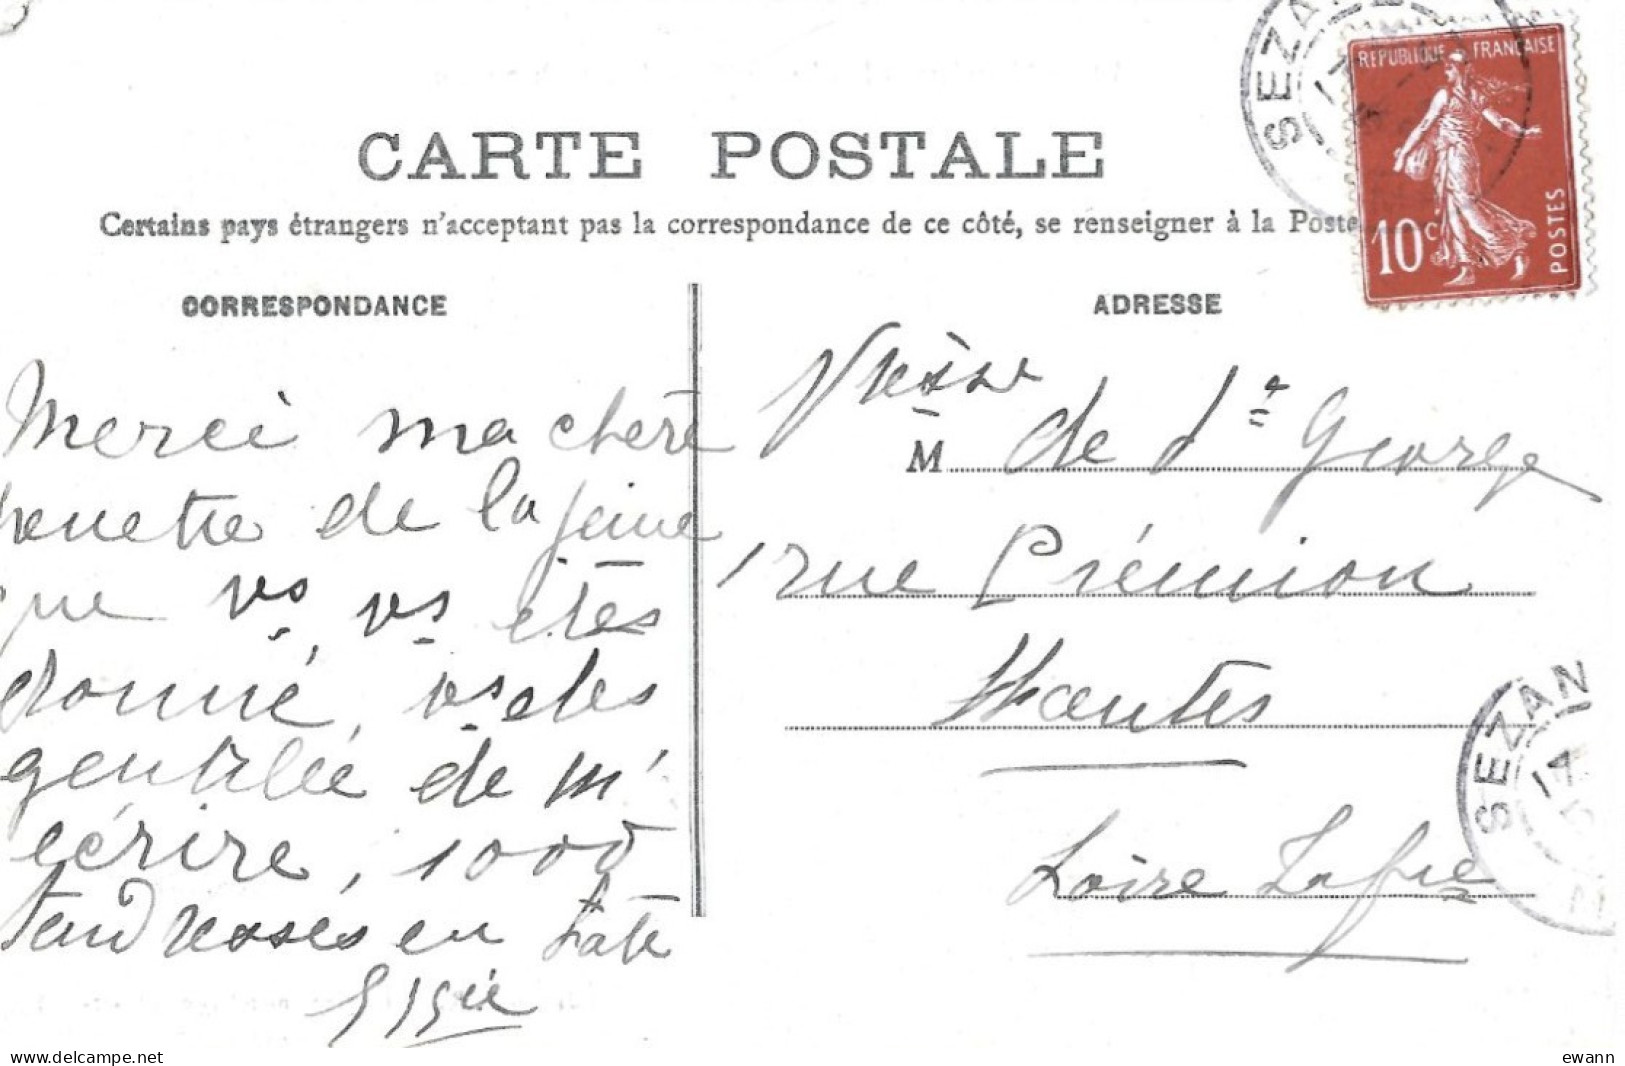 SEZAN
REPUBLIQUE FRANCAISE
10c
POSTES
CARTE POSTALE
Certains pays étrangers n'acceptant pas la correspondance de ce côté, se renseigner à la Poste
CORRESPONDANCE
Merci ma chère
de la peine
que vs vs êtes
donné, vs etes
gentille de m'
écrire, 1000
tendresses en hate
ADRESSE
M de St George
1 rue Prémion
Nantes
Loire Infre
SEZAN
ewann